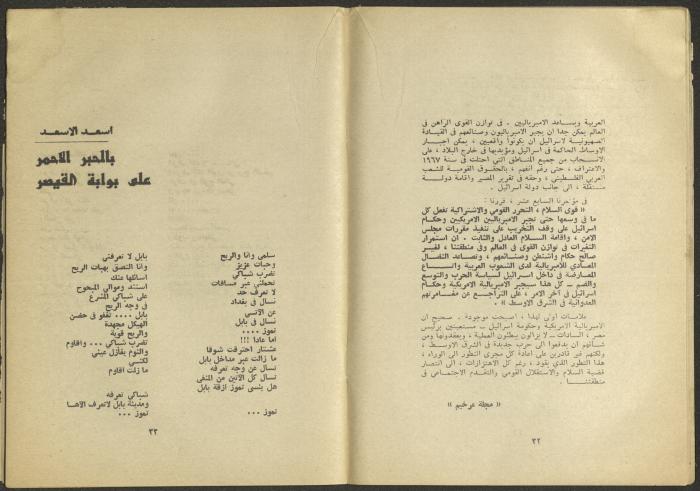 العربية ويساعد الامبرياليين . في توازن القوى الراهن في
العالم يمكن جدا ان يجبر الامبرياليون وصنائعهم في القيادة
الصهيونية لاسرائيل ان يكونوا واقعيين ، يمكن اجبار
الاوساط الحاكمة في اسرائيل ومؤيديها في خارج البلاد ، على
الانسحاب من جميع المناطق التي احتلت في سنة ١٩٦٧
والاعتراف ، حتى رغم أنفهم ، بالحقوق القومية للشعب
العربي الفلسطيني ، وحقه في تقرير المصير واقامة دولة
مستقلة ، الى جانب دولة اسرائيل .
في مؤتمرنا السابع عشر ، قررنا :
« قوى السلام ، التحرر القومي والاشتراكية تفعل كل
ما في وسعها حتى تجبر الامبرياليين الامريكيين وحكام
اسرائيل على وقف التخريب على تنفيذ مقررات مجلس
الامن ، واقامة السلام العادل والثابت . ان استمرار
التغيرات في توازن القوى في العالم وفي منطقتنا ، لغير
صالح حكام واشنطن وصنائعهم ، وتصاعد النضال
المعادي للامبريالية لدى الشعوب العربية واتساع
المعارضة في داخل اسرائيل لسياسة الحرب والتوسع
والضم ــ كل هذا سيجبر الامبريالية الامريكية وحكام
اسرائيل في آخر الامر ، على التراجع عن مغامرتهم
العدوانية في الشرق الاوسط » .
علامات اولى لهذا ، اصبحت موجودة . صحيح ان
الامبريالية الامريكية وحكومة اسرائيل ــ مستعينين برئيس
مصر ، السادات ــ لا يزالون يبطئون العملية ، وبعقدونها ومن
شأنهم ان يدفعوا الى حرب جديدة في الشرق الاوسط ،
ولكنهم غير قادرين على اعادة كل مجرى التطور الى الوراء ،
هذا التطور الذي يقود ، رغم كل الاهتزازات ، الى انتصار
قضية السلام والاستقلال القومي والتقدم الاجتماعي في
منطقتنا
« مجلة عرخيم »
٣٢
اسعد الاسعد
بالحبر الاحمر
على بوابة القيصر
سلمى وانا والريح
وحبات عزيز
تضرب شباكي
تحملني عبر مسافات
لا تعرف حد
نسأل في بغداد
عن الآتسي
نسأل في بابل
تموز ....
اما عادا !!!
عشتار احترقت شوقا
ما زالت عبر مداخل بابل
تسأل عن وجه تعرفه
تسأل كل الآتين من المنفى
هل ينسى تموز ازقة بابل
تموز ...
بابل لا تعرفني
وانا التصق بهبات الريح
اسائلها عنك
استند وموالي المبحوح
على شباكي المشرع
في وجه الريح
بابل .... تغفو في حضن
الهيكل مجهدة
والريح قوية
تضرب شباكي ... واقاوم
والنوم يغازل عيني
لكنسي
ما زلت اقاوم
شباكي تعرفه
ومدينة بابل لاتعرف الآها
تموز ...
٣٣